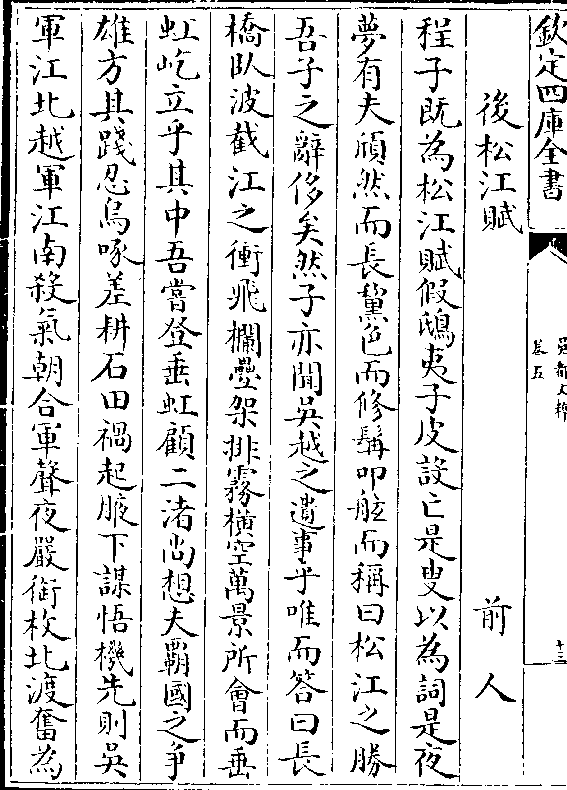 欽定四庫全書
卷五
十三
後松江賦
前人
程子既為松江賦假鴟夷子皮設亡是叟以為詞是夜
夢有夫頎然而長黧色而修髯叩舷而稱曰松江之勝
吾子之辭侈矣然子亦聞吳越之遺事乎唯而答曰長
橋臥波截江之衝飛欄疊架排霧橫空萬景所會而垂
虹屹立乎其中吾嘗登垂虹顧二渚尚想夫覇國之爭
雄方其踐忍烏啄差耕石田禍起腋下謀悟機先則吳
軍江北越軍江南殺氣朝合軍聲夜嚴銜枚北渡奮為